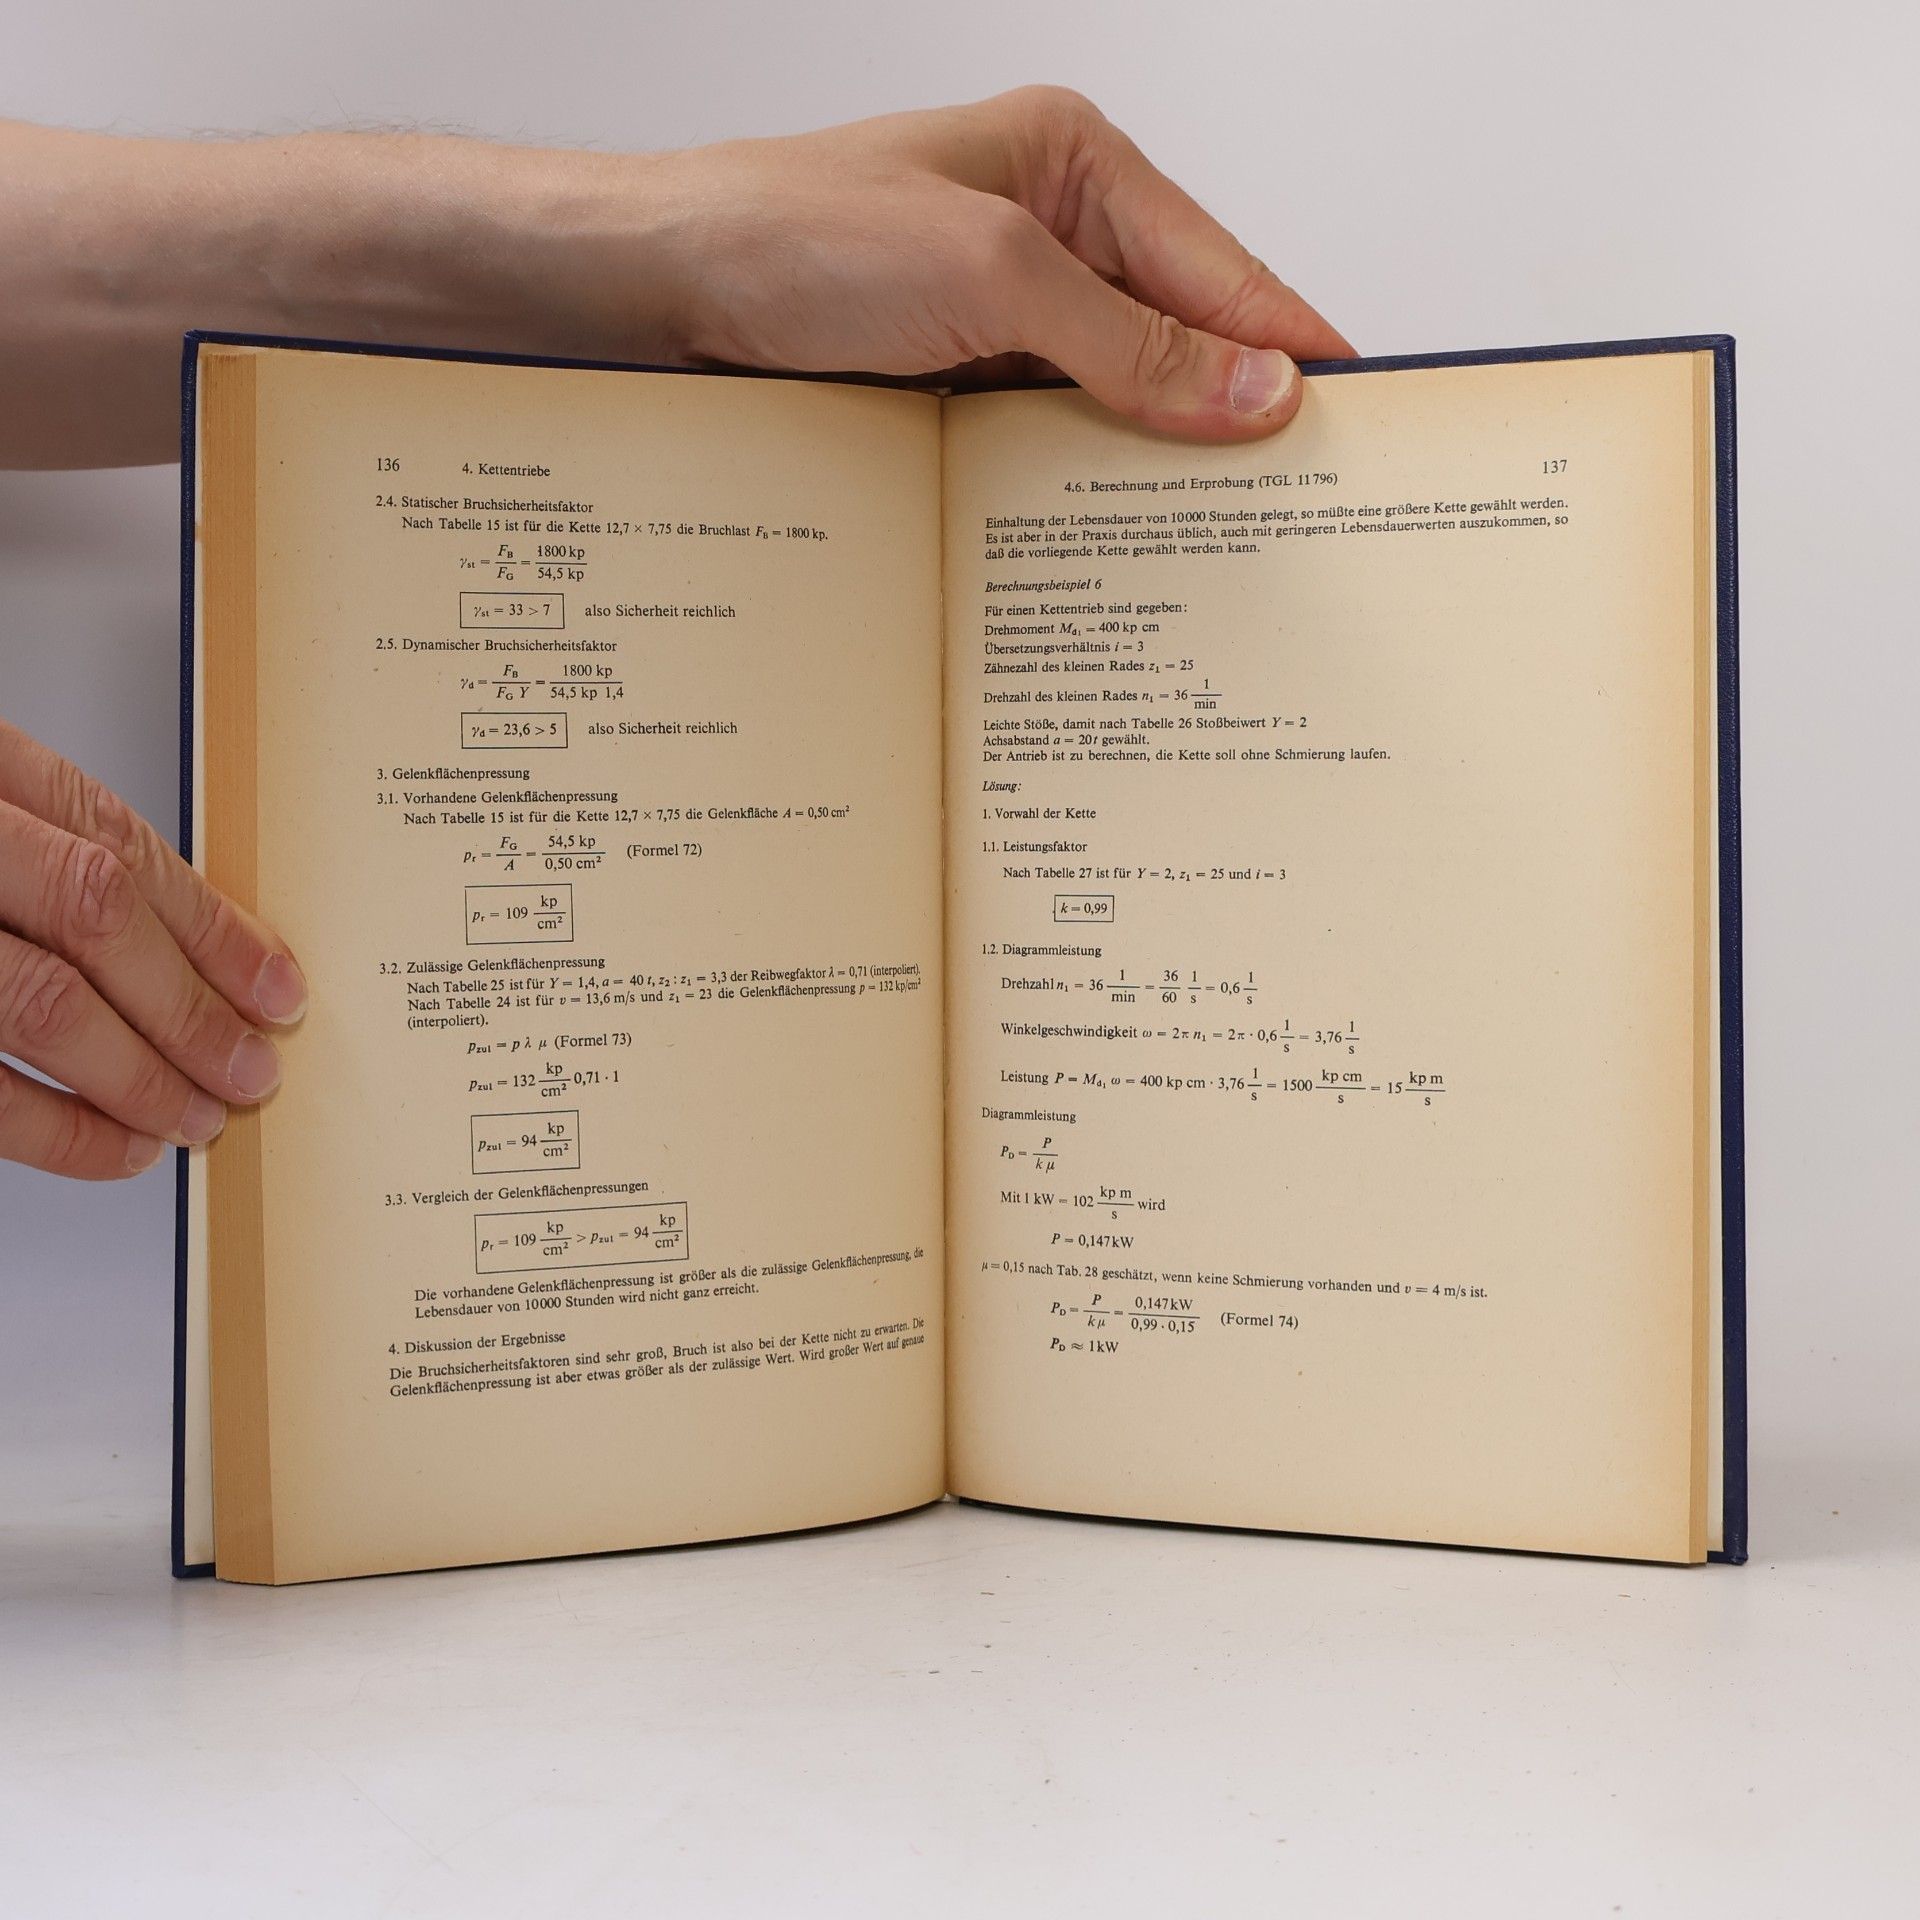 136 4. Kettentriebe
2.4. Statischer Bruchsicherheitsfaktor
Nach Tabelle 15 ist für die Kette 12,7 × 7,75 die Bruchlast F_B = 1800 kp.
γ_st = F_B / F_G = 1800 kp / 54,5 kp
γ_st = 33 > 7 also Sicherheit reichlich
2.5. Dynamischer Bruchsicherheitsfaktor
γ_d = F_B / F_G Y = 1800 kp / 54,5 kp 1,4
γ_d = 23,6 > 5 also Sicherheit reichlich
3. Gelenkflächenpressung
3.1. Vorhandene Gelenkflächenpressung
Nach Tabelle 15 ist für die Kette 12,7 × 7,75 die Gelenkfläche A = 0,50 cm²
p_r = F_G / A = 54,5 kp / 0,50 cm² (Formel 72)
p_r = 109 kp / cm²
3.2. Zulässige Gelenkflächenpressung
Nach Tabelle 25 ist für Y = 1,4, a = 40 t, z₂ : z₁ = 3,3 der Reibwegfaktor λ = 0,71 (interpoliert).
Nach Tabelle 24 ist für v = 13,6 m/s und z₁ = 23 die Gelenkflächenpressung p = 132 kp/cm²
(interpoliert).
p_zul = p λ μ (Formel 73)
p_zul = 132 kp / cm² 0,71 · 1
p_zul = 94 kp / cm²
3.3. Vergleich der Gelenkflächenpressungen
p_r = 109 kp / cm² > p_zul = 94 kp / cm²
Die vorhandene Gelenkflächenpressung ist größer als die zulässige Gelenkflächenpressung, die
Lebensdauer von 10000 Stunden wird nicht ganz erreicht.
4. Diskussion der Ergebnisse
Die Bruchsicherheitsfaktoren sind sehr groß, Bruch ist also bei der Kette nicht zu erwarten. Die
Gelenkflächenpressung ist aber etwas größer als der zulässige Wert. Wird großer Wert auf genaue
4.6. Berechnung und Erprobung (TGL 11796) 137
Einhaltung der Lebensdauer von 10000 Stunden gelegt, so müßte eine größere Kette gewählt werden.
Es ist aber in der Praxis durchaus üblich, auch mit geringeren Lebensdauerwerten auszukommen, so
daß die vorliegende Kette gewählt werden kann.
Berechnungsbeispiel 6
Für einen Kettentrieb sind gegeben:
Drehmoment M_d₁ = 400 kp cm
Übersetzungsverhältnis i = 3
Zähnezahl des kleinen Rades z₁ = 25
Drehzahl des kleinen Rades n₁ = 36 1 / min
Leichte Stöße, damit nach Tabelle 26 Stoßbeiwert Y = 2
Achsabstand a = 20t gewählt.
Der Antrieb ist zu berechnen, die Kette soll ohne Schmierung laufen.
Lösung:
1. Vorwahl der Kette
1.1. Leistungsfaktor
Nach Tabelle 27 ist für Y = 2, z₁ = 25 und i = 3
k = 0,99
1.2. Diagrammleistung
Drehzahl n₁ = 36 1 / min = 36 / 60 1 / s = 0,6 1 / s
Winkelgeschwindigkeit ω = 2π n₁ = 2π · 0,6 1 / s = 3,76 1 / s
Leistung P = M_d₁ ω = 400 kp cm · 3,76 1 / s = 1500 kp cm / s = 15 kp m / s
Diagrammleistung
P_D = P / k μ
Mit 1 kW = 102 kp m / s wird
P = 0,147 kW
μ = 0,15 nach Tab. 28 geschätzt, wenn keine Schmierung vorhanden und v = 4 m/s ist.
P_D = P / k μ = 0,147 kW / 0,99 · 0,15 (Formel 74)
P_D ≈ 1 kW